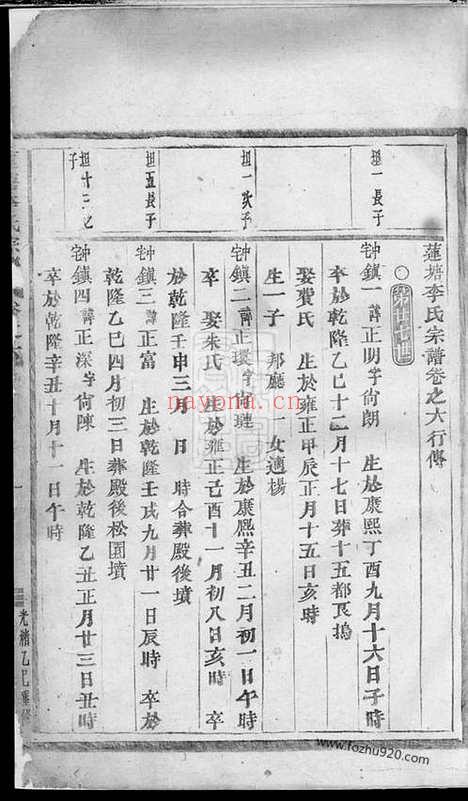 蓮塘李氏宗譜卷之六行傳
坦一長子
鈡鎮一諱正明字尙朗 生於康熙丁酉九月十六日子時
卒於乾隆乙巳十二月十七日葬十五都艮塢
娶費氏 生於雍正甲辰正月十五日亥時
生一子 邦廳 一女適楊
坦一次子
鈡鎮二諱正環字尙璉 生於康熙辛丑二月初一日午時
卒 娶朱氏 生於雍正己酉十一月初八日亥時 卒
於乾隆壬申三月 日 時合葬殿後墳
坦五長子
鈡鎮三諱正富 生於乾隆壬戌九月廿一日辰時 卒於
乾隆乙巳四月初三日葬殿後松園墳
坦十三之子
鈡鎮四諱正深字尙陳 生於乾隆乙丑正月廿三日丑時
卒於乾隆辛丑十月十一日午時
光緒乙巳重修
nayona.cn
www.fozhu920.com